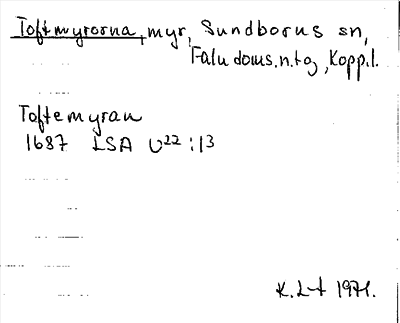 Toftmyrorna, myr, Sundborns sn,
Falu doms.n.tg, Kopp.l.
Toftemyran
1687 LSA U22:13
K.L-t 1971.